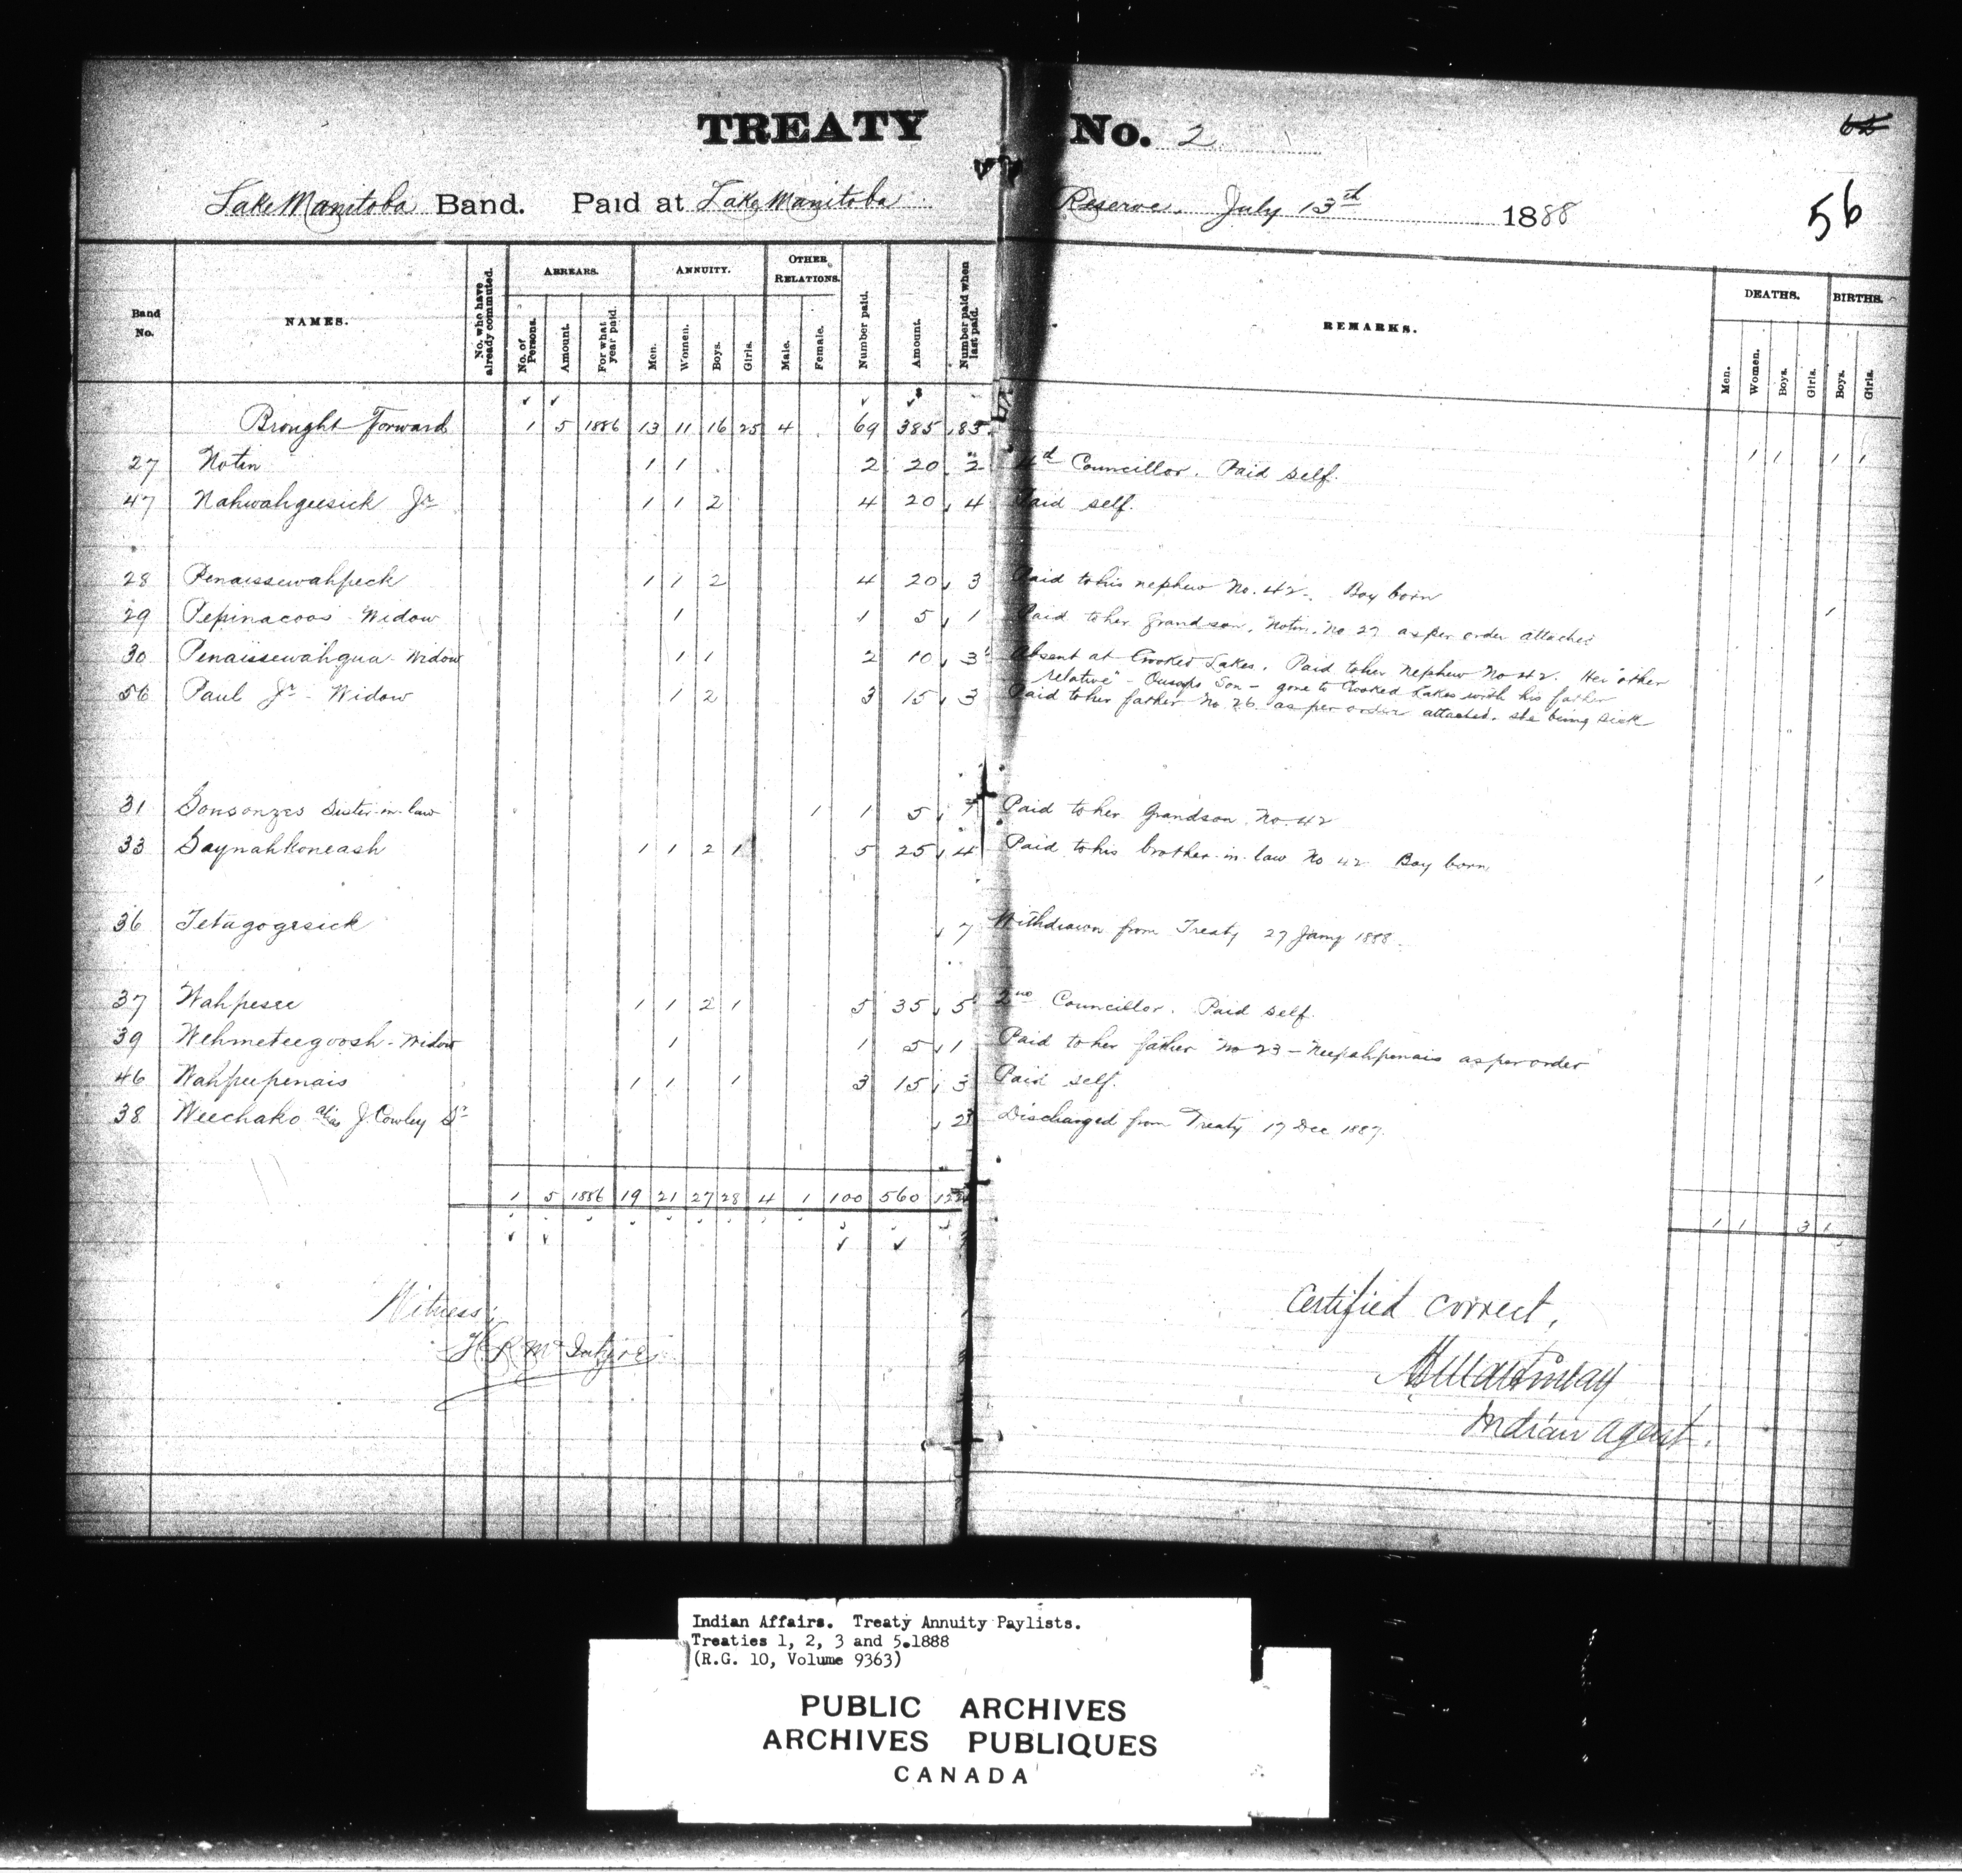 TREATY No. 2
Lake Manitoba Band. Paid at Lake Manitoba Reserve, July 13th 1888
56
Band No. NAMES. No. who have already commuted. ARREARS. No. of Persons. Amount. For what year paid. ANNUITY. Men. Women. Boys. Girls. OTHER RELATIONS. Male. Female. Number paid. Amount. Number paid when last paid. REMARKS. DEATHS. Men. Women. Boys. Girls. BIRTHS. Boys. Girls.
Brought Forward 1 5 1886 13 11 16 25 4 69 385 83 1 1 1 1
27 Notin 1 1 2 20 2 Councillor. Paid self.
47 Nahwahgeesick Jr 1 1 2 4 20 4 Paid self.
28 Penaissewahpeck 1 1 2 4 20 3 Paid to his nephew No. 42. Boy born 1
29 Pepinacoos Widow 1 1 5 1 Paid to her grandson, Notin, No 27 as per order attached
30 Penaissewahqua - Widow 1 1 2 10 3 Absent at Crooked Lakes. Paid to her nephew No 42. Her "other
relative" - Son - gone to Crooked Lakes with his father
56 Paul Jr - Widow 1 2 3 15 3 Paid to her father No. 26 as per order attached. she being sick
31 Sonsonzes Sister-in-law 1 1 5 7 Paid to her Grandson No. 42
33 Saynahkoneash 1 1 2 1 5 25 4 Paid to his brother-in-law No 42 Boy born 1
36 Tetagogesick 7 Withdrawn from Treaty 27 Jany 1888.
37 Wahpesee 1 1 2 1 5 35 5 2nd Councillor. Paid self.
39 Wehmeteegoosh - Widow 1 1 5 1 Paid to her father No 23 - Neepahpenais as per order
46 Wahpeepenais 1 1 1 3 15 3 Paid self.
38 Weechako alias J. Cowley Sr 2 Discharged from Treaty 17 Dec 1887.
1 5 1886 19 21 27 28 4 1 100 560 122 1 1 3 1
Witness;
H. R. McIntyre
Certified correct,
Indian agent.
Indian Affairs. Treaty Annuity Paylists.
Treaties 1, 2, 3 and 5.1888
(R.G. 10, Volume 9363)
PUBLIC ARCHIVES
ARCHIVES PUBLIQUES
CANADA